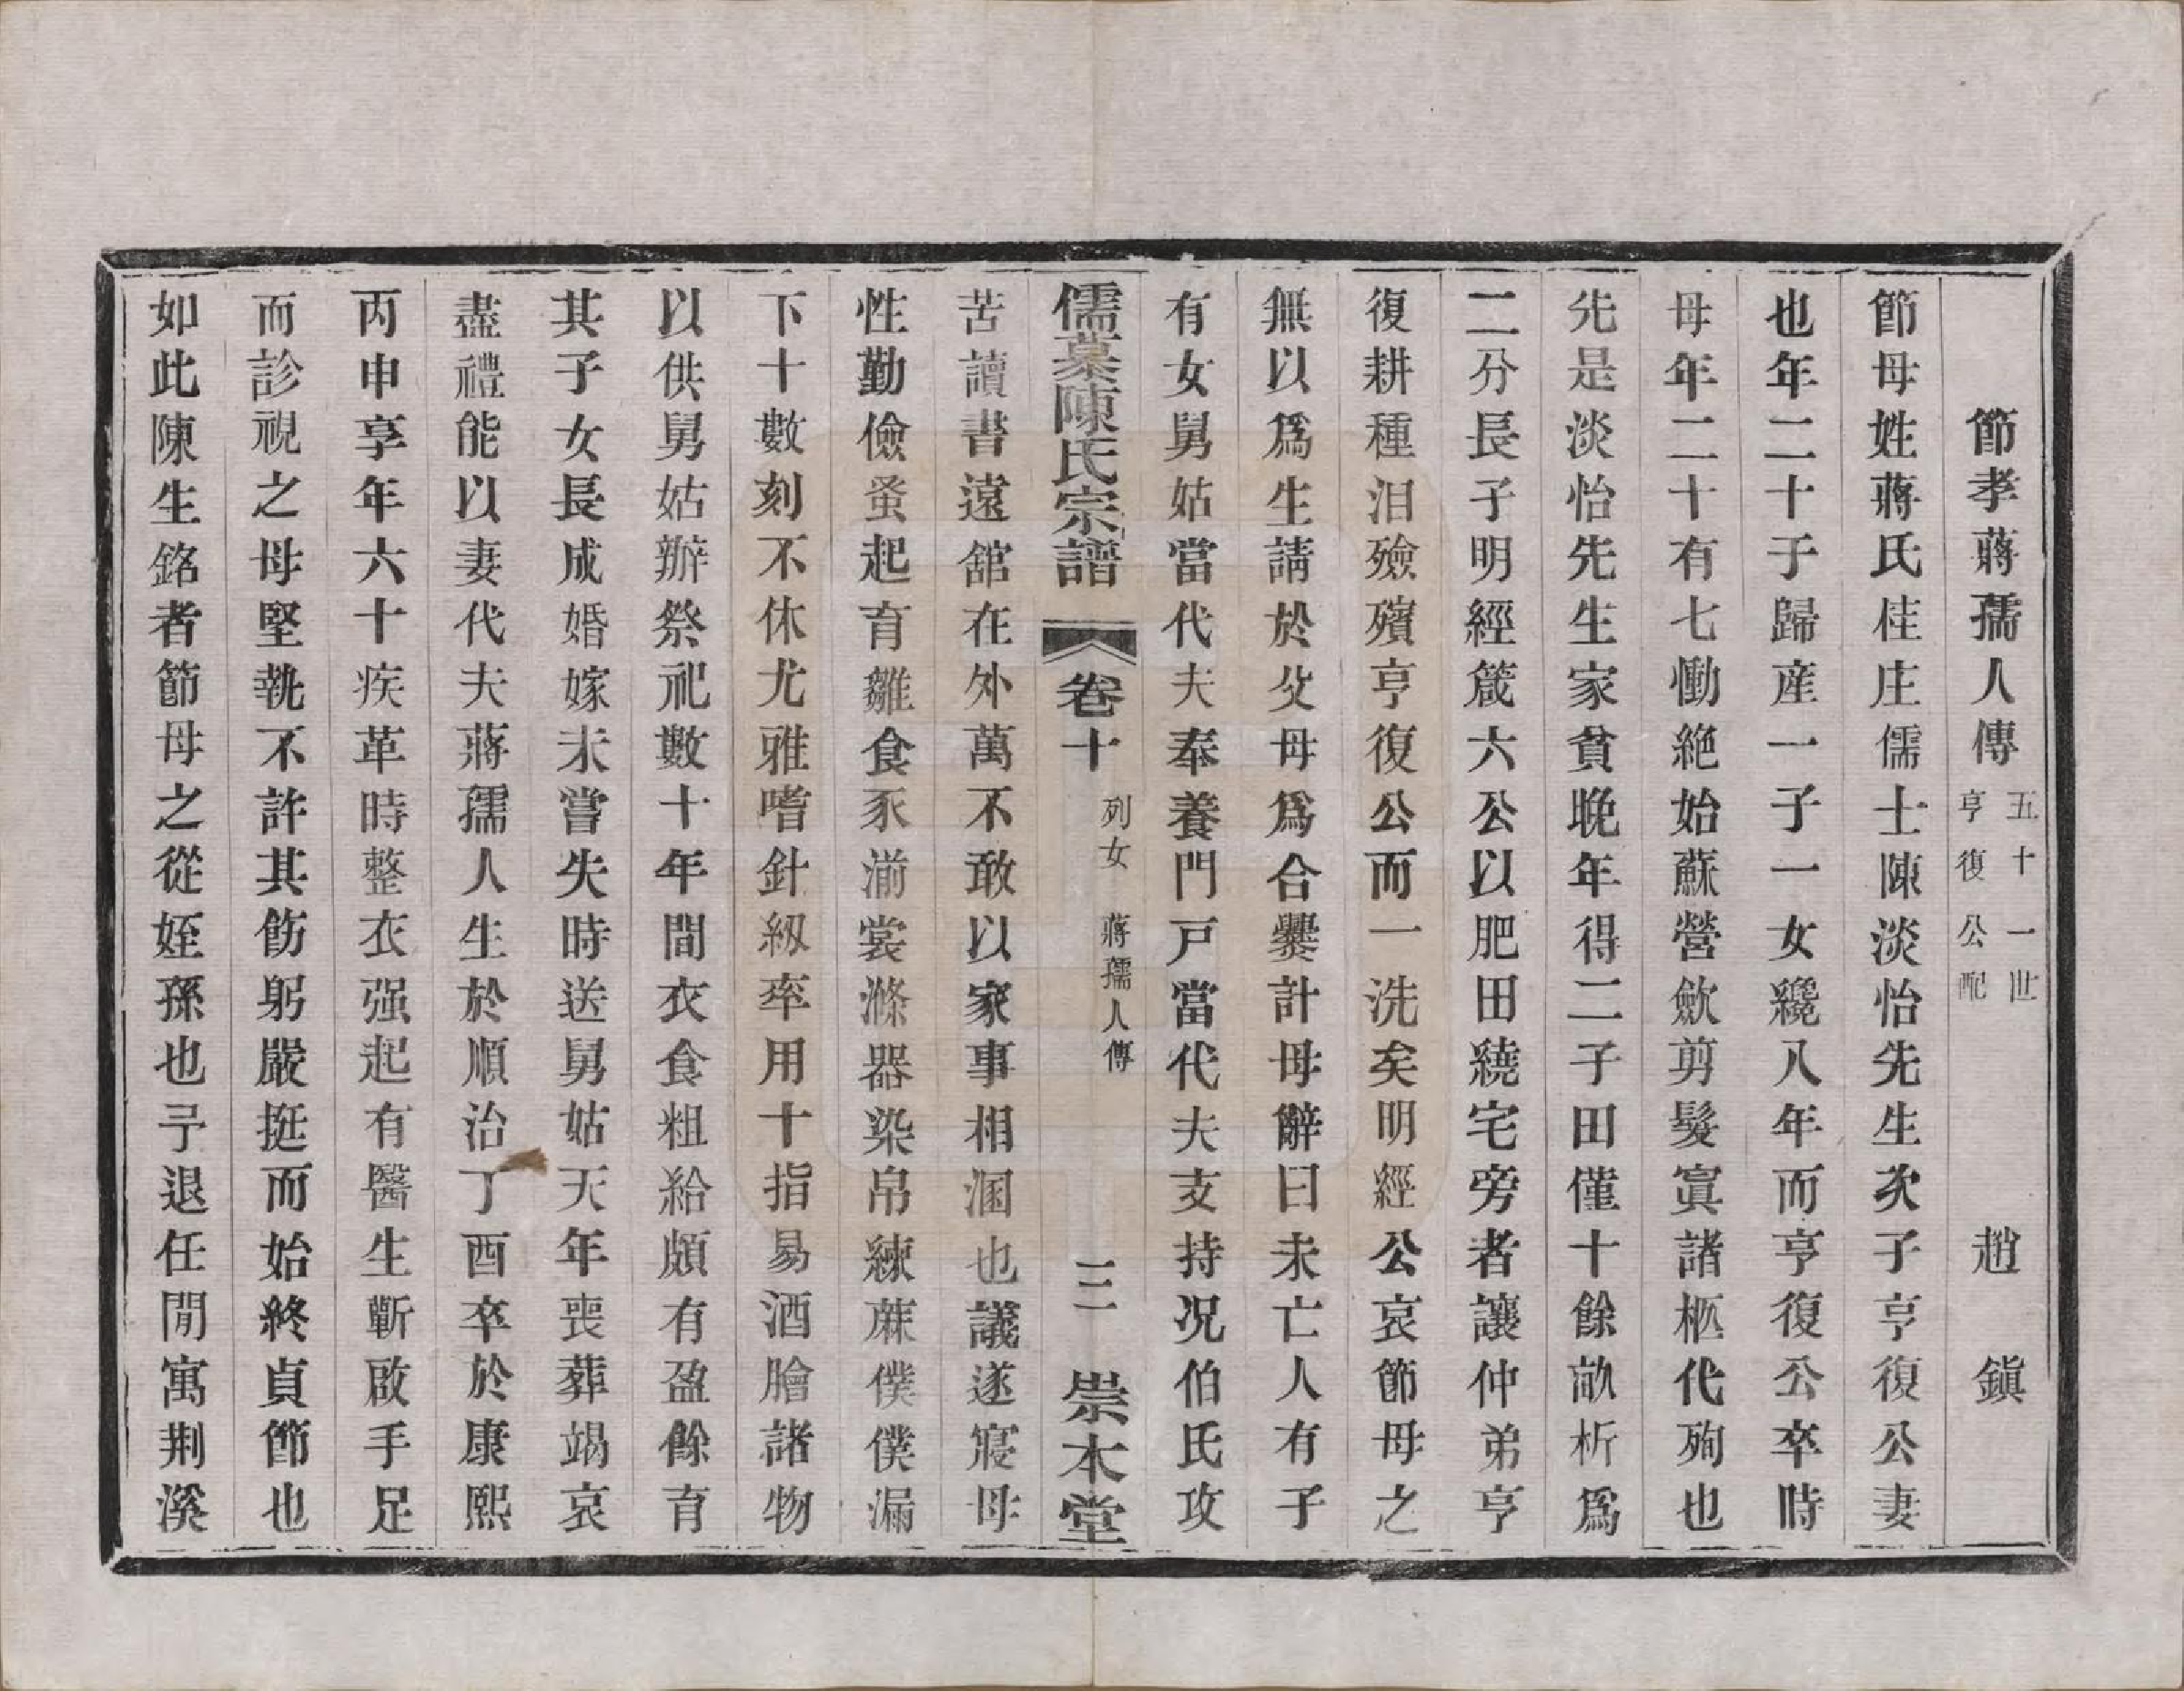 節孝蔣孺人傳 五十一世亨復公配 趙鎭
節母姓蔣氏佳庄儒士陳淡怡先生次子亨復公妻
也年二十于歸産一子一女纔八年而亨復公卒時
母年二十有七慟絶始蘇營斂剪髮寘諸柩代殉也
先是淡怡先生家貧晩年得二子田僅十餘畝析爲
二分長子明經箴六公以肥田繞宅旁者讓仲弟亨
復耕種洎殮殯亨復公而一洗矣明經公哀節母之
無以爲生請於父母爲合爨計母辭曰未亡人有子
有女舅姑當代夫奉養門戸當代夫支持况伯氏攻
儒慕陳氏宗譜 卷十 列女 蔣孺人傳 三 崇本堂
苦讀書遠舘在外萬不敢以家事相溷也議遂寢母
性勤儉蚤起育雞食豕湔裳滌器染帛練蔴僕僕漏
下十數刻不休尤雅嗜針紉卒用十指易酒膾諸物
以供舅姑辦祭祀數十年間衣食粗給頗有盈餘育
其子女長成婚嫁未嘗失時送舅姑天年喪葬竭哀
盡禮能以妻代夫蔣孺人生於順治丁酉卒於康熙
丙申享年六十疾革時整衣强起有醫生靳啟手足
而診視之母堅執不許其飭躬嚴挺而始終貞節也
如此陳生銘者節母之從姪孫也予退任閒寓荆溪